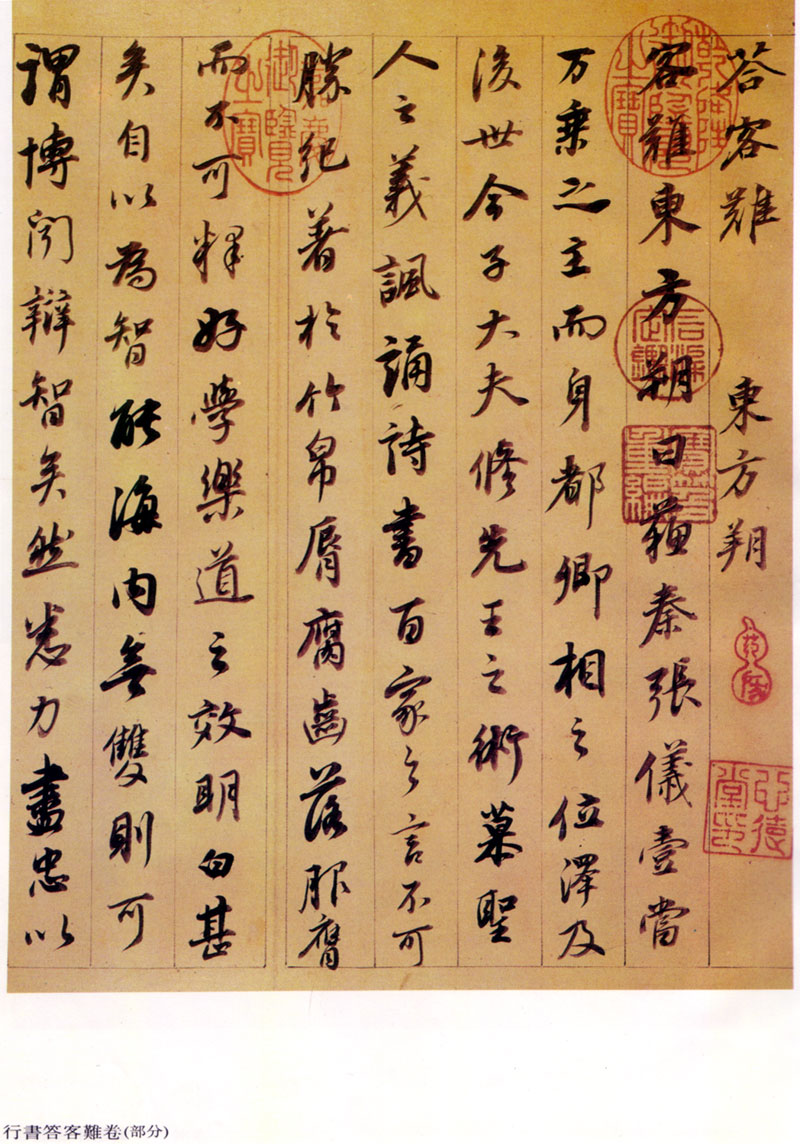 答客難
東方朔
客難東方朔曰蘇秦張儀壹當
万乗之主而身都卿相之位澤及
後世今子大夫修先王之術慕聖
人之義諷誦詩書百家之言不可
勝紀著於竹帛脣腐齒落服膺
而不可釋好學樂道之效明白甚
矣自以為智能海内無雙則可
謂博聞辯智矣然悉力盡忠以
行書答客難卷(部分)